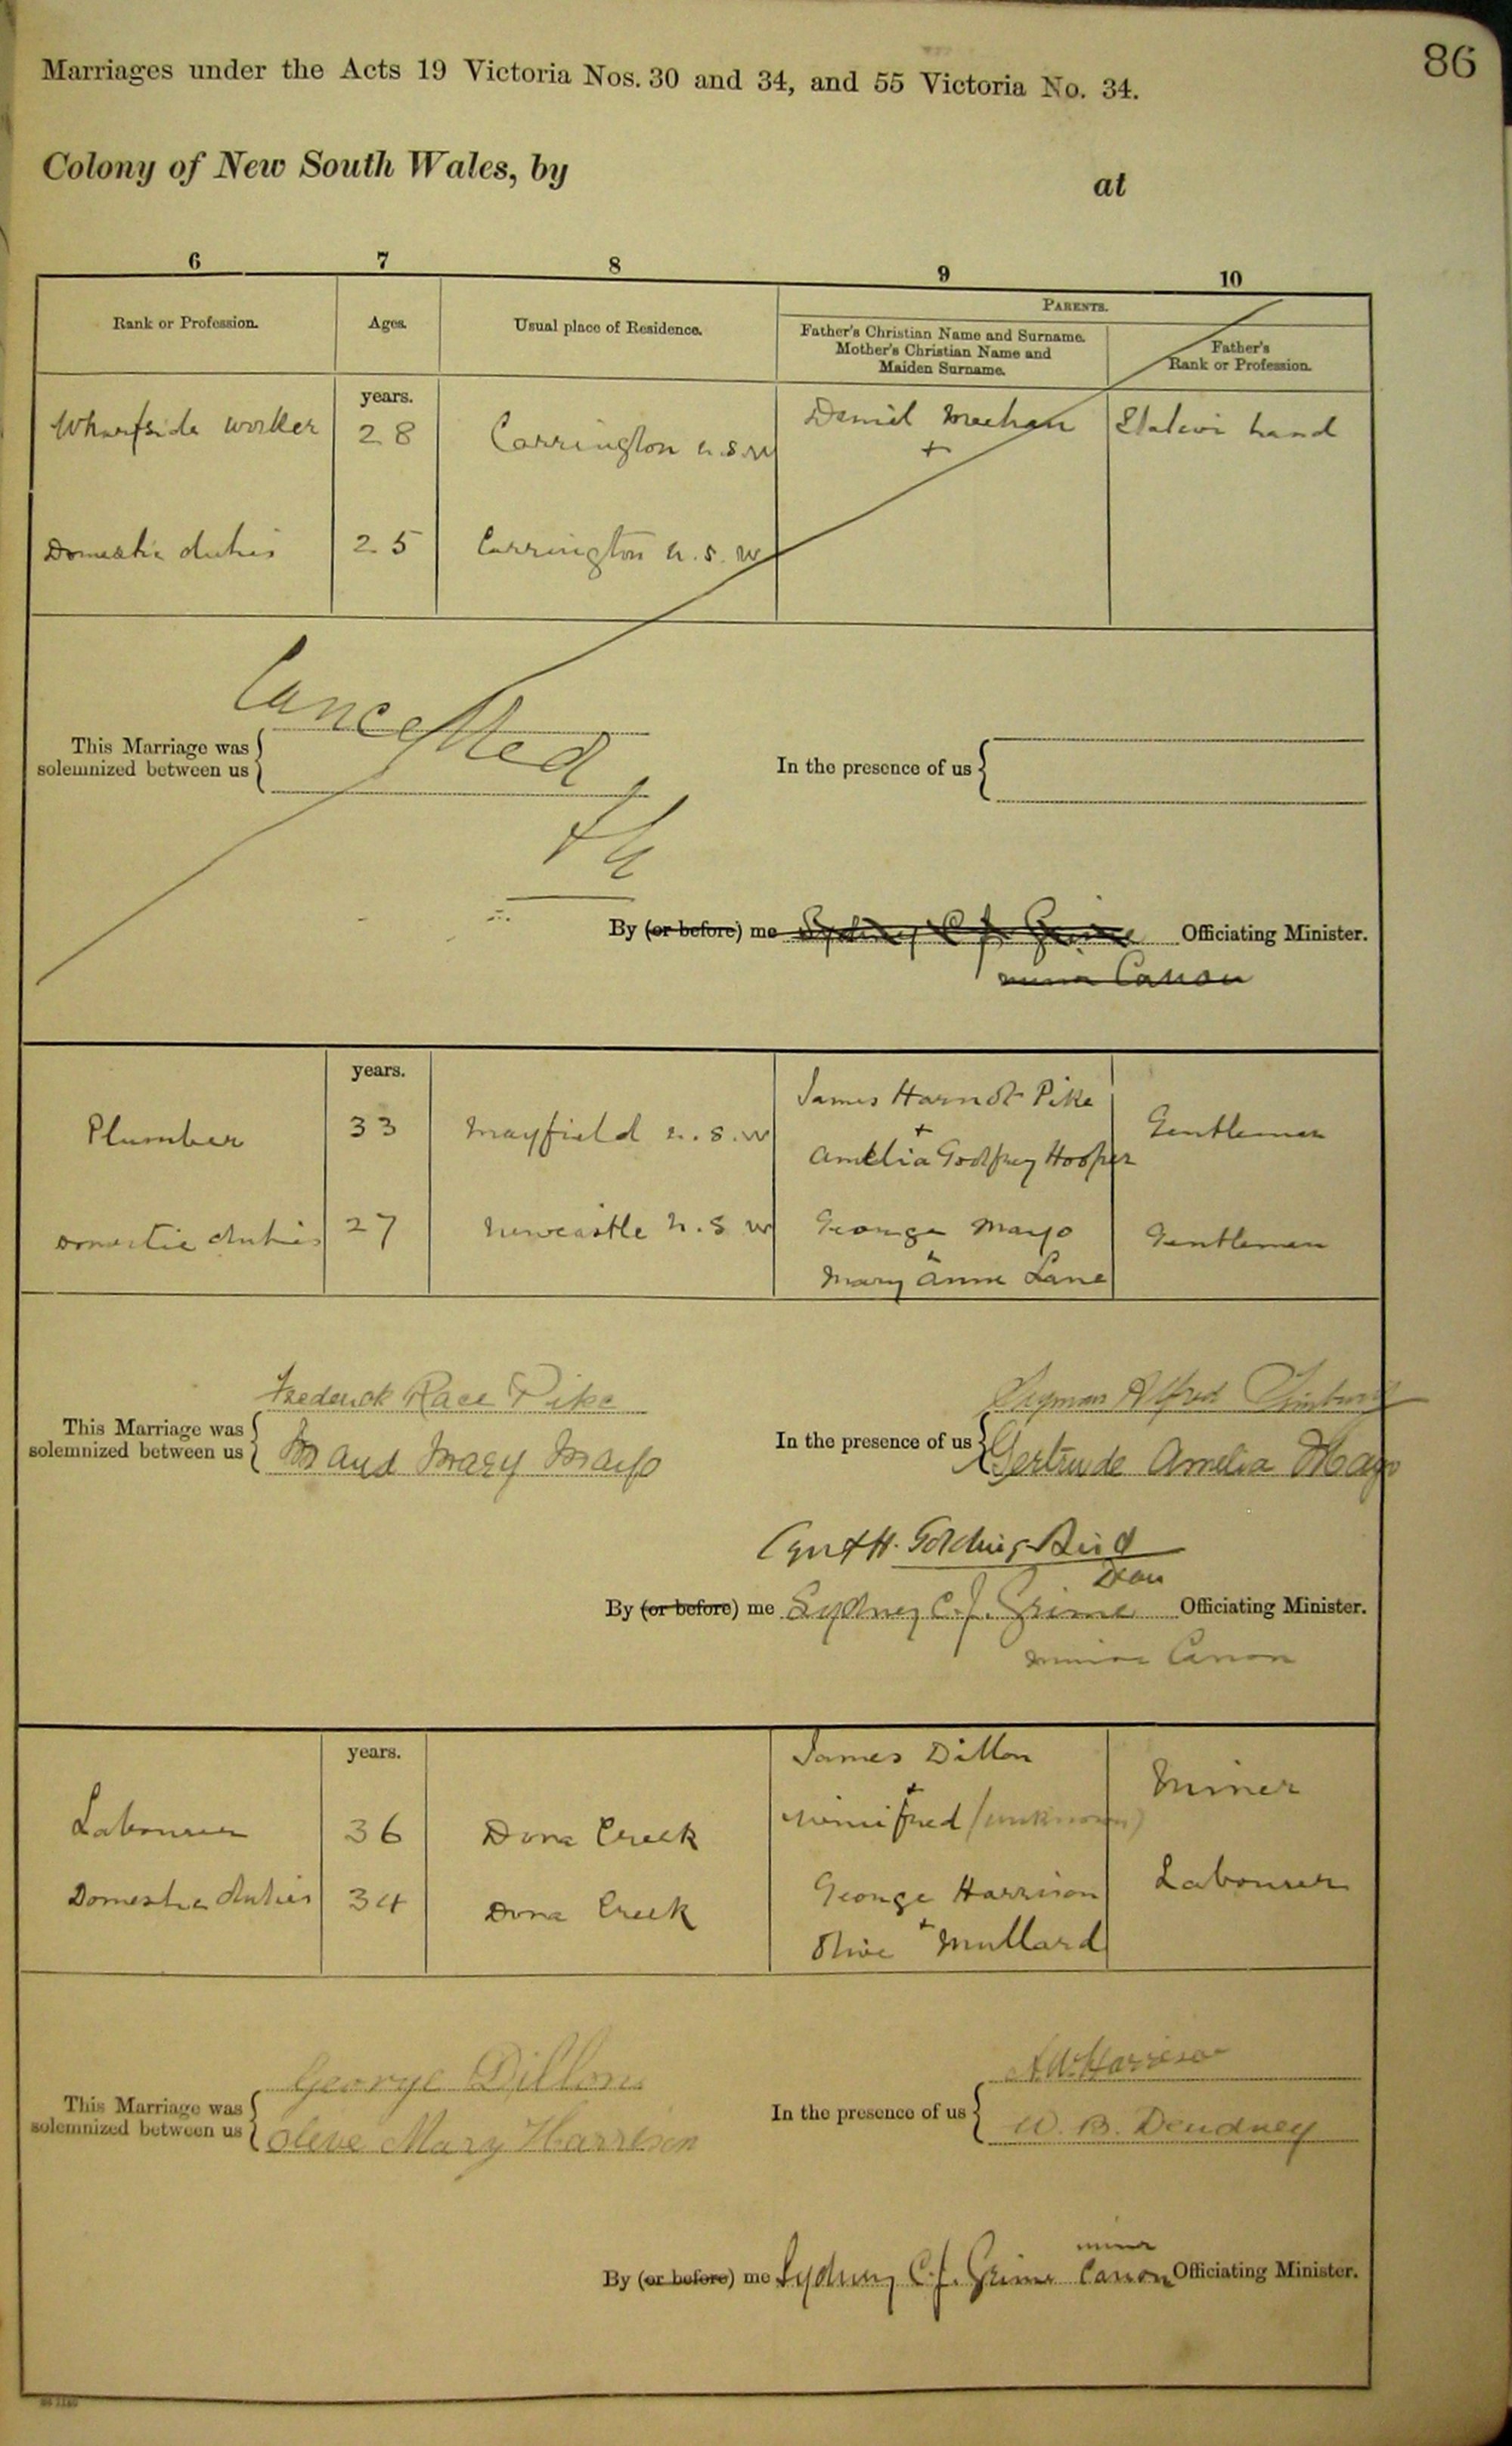 86
Marriages under the Acts 19 Victoria Nos. 30 and 34, and 55 Victoria No. 34.
Colony of New South Wales, by at
6 7 8 9 10
Rank or Profession. Ages. Usual place of Residence. PARENTS.
Father's Christian Name and Surname. Mother's Christian Name and Maiden Surname. Father's Rank or Profession.
years.
Wharfside worker 28 Carrington n.s.w Daniel Meehan hand
+
Domestic duties 25 Carrington n.s.w
Cancelled
This Marriage was solemnized between us In the presence of us
By (or before) me Sydney C. J. Grime Officiating Minister.
minor Canon
years.
James Harndt Pike
Plumber 33 Mayfield n.s.w + Gentleman
Amelia Godfrey Hooper
Domestic duties 27 Newcastle n.s.w George Mayo Gentleman
+
Mary Anne Lane
Frederick Race Pike Alfred
This Marriage was solemnized between us In the presence of us
Maud Mary Mayo Gertrude Amelia Mayo
Golding-Bird
Dean
By (or before) me Sydney C. J. Grime Officiating Minister.
minor Canon
years.
James Dillon Miner
+
Labourer 36 Dora Creek Winifred (unknown)
Domestic duties 34 Dora Creek George Harrison Labourer
+
Olive Mullard
George Dillon A.W. Harrison
This Marriage was solemnized between us In the presence of us
Olive Mary Harrison W. B. Deudney
minor
By (or before) me Sydney C. J. Grime Canon Officiating Minister.